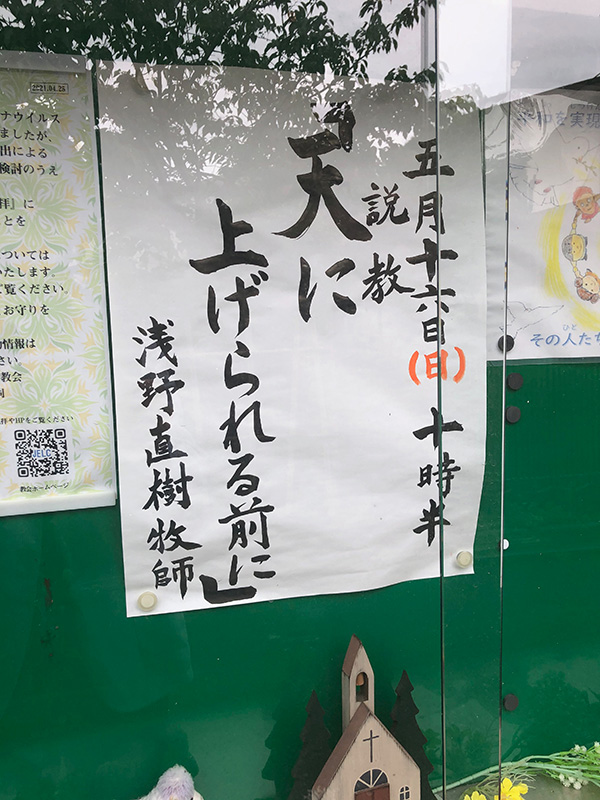 五月十六日(日) 十時半
説教
「天に
上げられる前に」
浅野直樹牧師
2021.04.25
ナウイルス
ましたが、
出による
検討のうえ
拝』に
とを
については
いたします
ご覧ください
お守りを
情報は
さい
教会
拝やHPをご覧ください
JELC
教会ホームページ
和を実現
その人たち
ひと